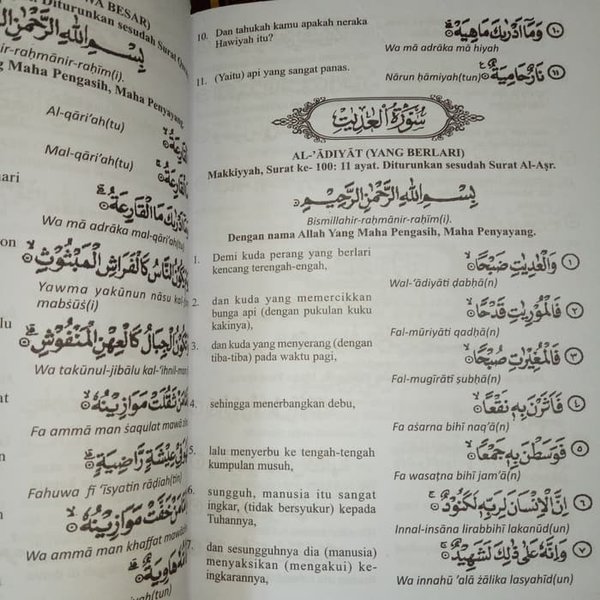 WA BESAR)
Diturunkan sesudah Surat
بِسْمِ اللهِ الرَّحْمٰنِ الرَّحِيْمِ
-raḥmānir-raḥīm(i).
Yang Maha Pengasih, Maha Penyayang.
اَلْقَارِعَةُ
Al-qāri'ah(tu)
Mal-qāri'ah(tu)
وَمَآ اَدْرٰىكَ مَا الْقَارِعَةُ
Wa mā adrāka mal-qāri'ah(tu)
يَكُوْنُ النَّاسُ كَالْفَرَاشِ الْمَبْثُوْثِ
Yawma yakūnun nāsu kal-
mabśūś(i)
وَتَكُوْنُ الْجِبَالُ كَالْعِهْنِ الْمَنْفُوْشِ
Wa takūnul-jibālu kal-'ihnil-man
مَنْ ثَقُلَتْ مَوَازِيْنُهٗ
Fa ammā man śaqulat mawā
عِيْشَةٍ رَّاضِيَةٍ
Fahuwa fī 'īsyatin rāḍiah(tin)
مَنْ خَفَّتْ مَوَازِيْنُهٗ
Wa ammā man khaffat mawā
هَاوِيَةٌ
hāwiyah(tun)
10. Dan tahukah kamu apakah neraka
Hawiyah itu?
وَمَآ اَدْرٰىكَ مَاهِيَهْ ١٠
Wa mā adrāka mā hiyah
11. (Yaitu) api yang sangat panas.
نَارٌ حَامِيَةٌ ١١
Nārun ḥāmiyah(tun)
سُوْرَةُ الْعٰدِيٰتِ
AL-'ĀDIYĀT (YANG BERLARI)
Makkiyyah, Surat ke- 100: 11 ayat. Diturunkan sesudah Surat Al-Aṣr.
بِسْمِ اللهِ الرَّحْمٰنِ الرَّحِيْمِ
Bismillahir-raḥmānir-raḥīm(i).
Dengan nama Allah Yang Maha Pengasih, Maha Penyayang.
1. Demi kuda perang yang berlari
kencang terengah-engah,
وَالْعٰدِيٰتِ ضَبْحًا ١
Wal-'ādiyāti ḍabḥā(n)
2. dan kuda yang memercikkan
bunga api (dengan pukulan kuku
kakinya),
فَالْمُوْرِيٰتِ قَدْحًا ٢
Fal-mūriyāti qadḥā(n)
3. dan kuda yang menyerang (dengan
tiba-tiba) pada waktu pagi,
فَالْمُغِيْرٰتِ صُبْحًا ٣
Fal-mugīrāti ṣubḥā(n)
4. sehingga menerbangkan debu,
فَاَثَرْنَ بِهٖ نَقْعًا ٤
Fa aśarna bihī naq'ā(n)
5. lalu menyerbu ke tengah-tengah
kumpulan musuh,
فَوَسَطْنَ بِهٖ جَمْعًا ٥
Fa wasaṭna bihī jam'ā(n)
6. sungguh, manusia itu sangat
ingkar, (tidak bersyukur) kepada
Tuhannya,
اِنَّ الْاِنْسَانَ لِرَبِّهٖ لَكَنُوْدٌ ٦
Innal-insāna lirabbihī lakanūd(un)
7. dan sesungguhnya dia (manusia)
menyaksikan (mengakui) ke-
ingkarannya,
وَاِنَّهٗ عَلٰى ذٰلِكَ لَشَهِيْدٌ ٧
Wa innahū 'alā żālika lasyahīd(un)